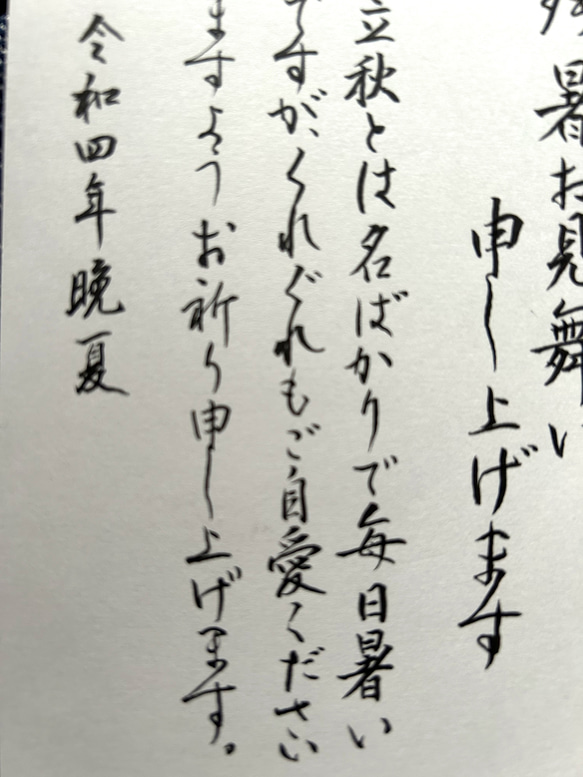 暑お見舞い
申し上げます
立秋とは名ばかりで毎日暑い
ですが、くれぐれもご自愛ください
ますようお祈り申し上げます。
令和四年晩夏